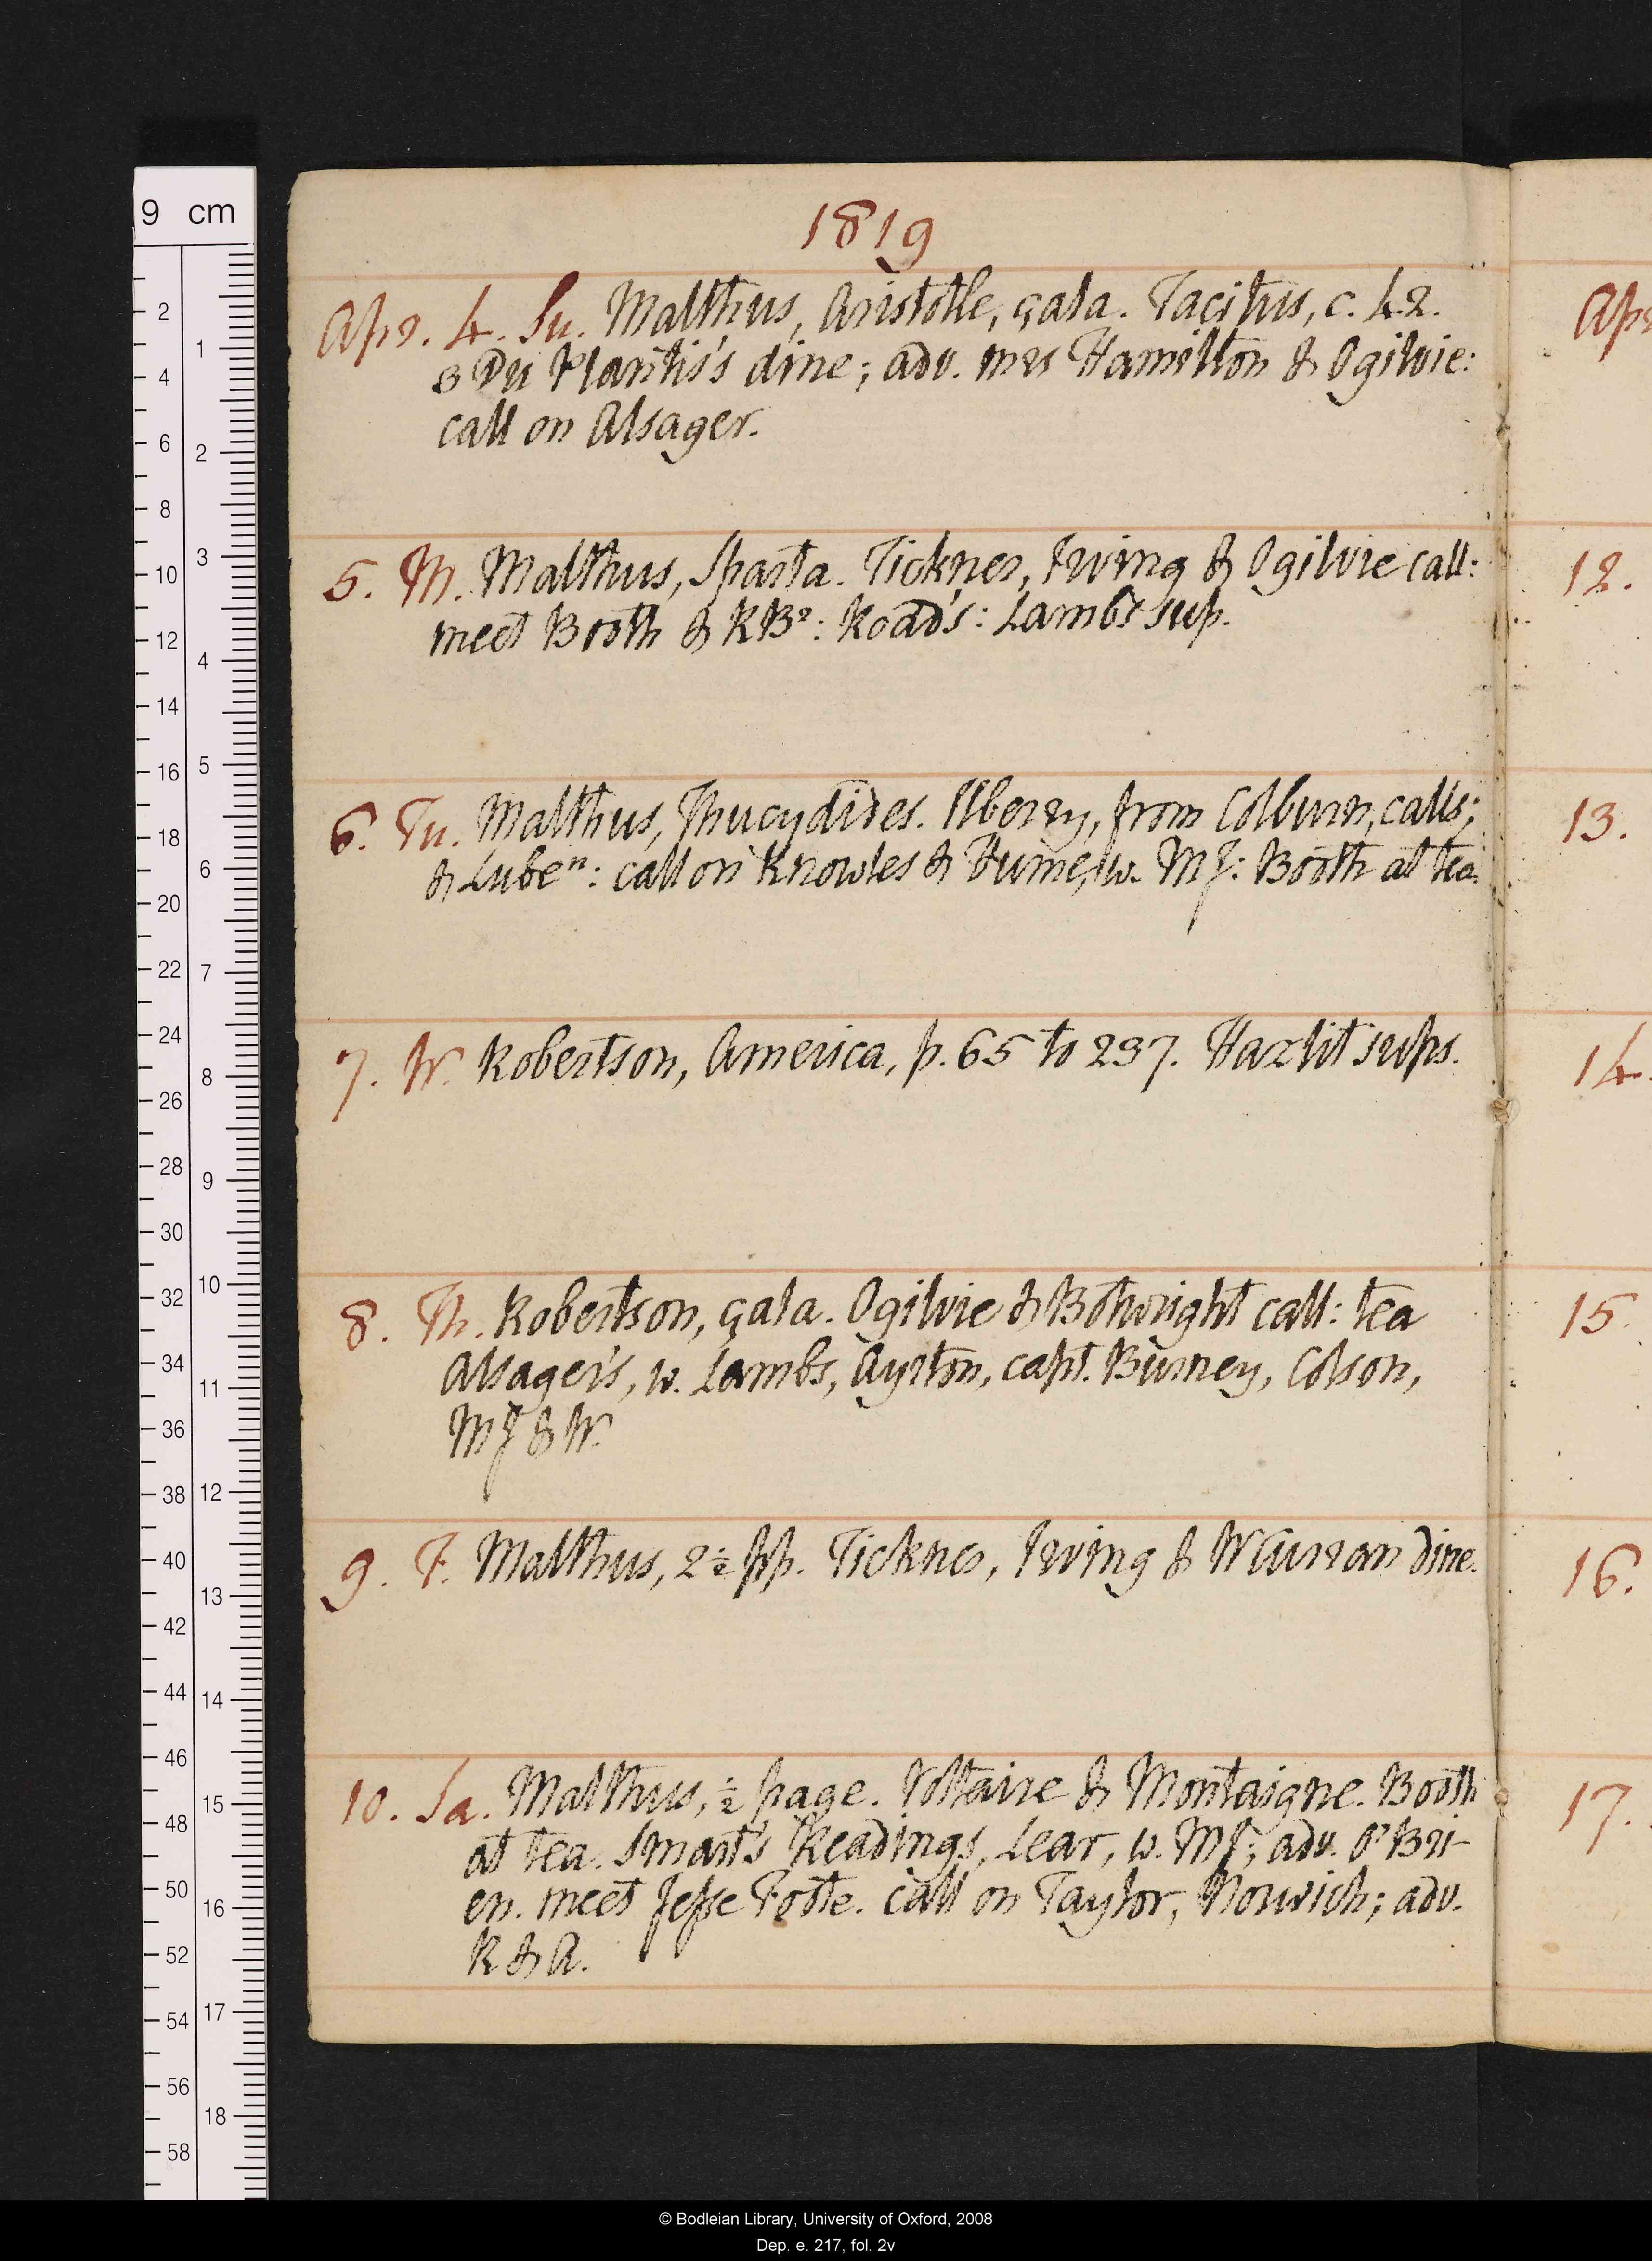 1819
Apr. 4. Su. Malthus, Aristotle, çala. Tacitus, c. 42.
3 Du Plantis's dine; adv. mrs Hamilton & Ogilvie:
call on Alsager.
5. M. Malthus, Sparta. Ticknor, Irving & Ogilvie call:
meet Booth & KBr: Road's: Lambs sup.
6. Tu. Malthus, Thucydides. Ilbery, from Colburn, calls;
& Luben: call on Knowles & Hume, w. MJ: Booth at tea.
7. W. Robertson, America, p. 65 to 237. Hazlit sups.
8. Th. Robertson, çala. Ogilvie & Botwright call: tea
Alsager's, w. Lambs, Ayrton, capt. Burney, Colson,
MJ & W.
9. F. Malthus, 2½ pp. Ticknor, Irving & W Curran dine.
10. Sa. Malthus, ½ page. Voltaire & Montaigne. Booth
at tea. Smart's Readings, Lear, w. MJ; adv. O'Bri-
en. meet Jesse Foote. call on Taylor, Norwich; adv.
K & A.
Apr
12.
13.
14.
15.
16.
17.
9 cm
2
4
6
8
10
12
14
16
18
20
22
24
26
28
30
32
34
36
38
40
42
44
46
48
50
52
54
56
58
1
2
3
4
5
6
7
8
9
10
11
12
13
14
15
16
17
18
© Bodleian Library, University of Oxford, 2008
Dep. e. 217, fol. 2v